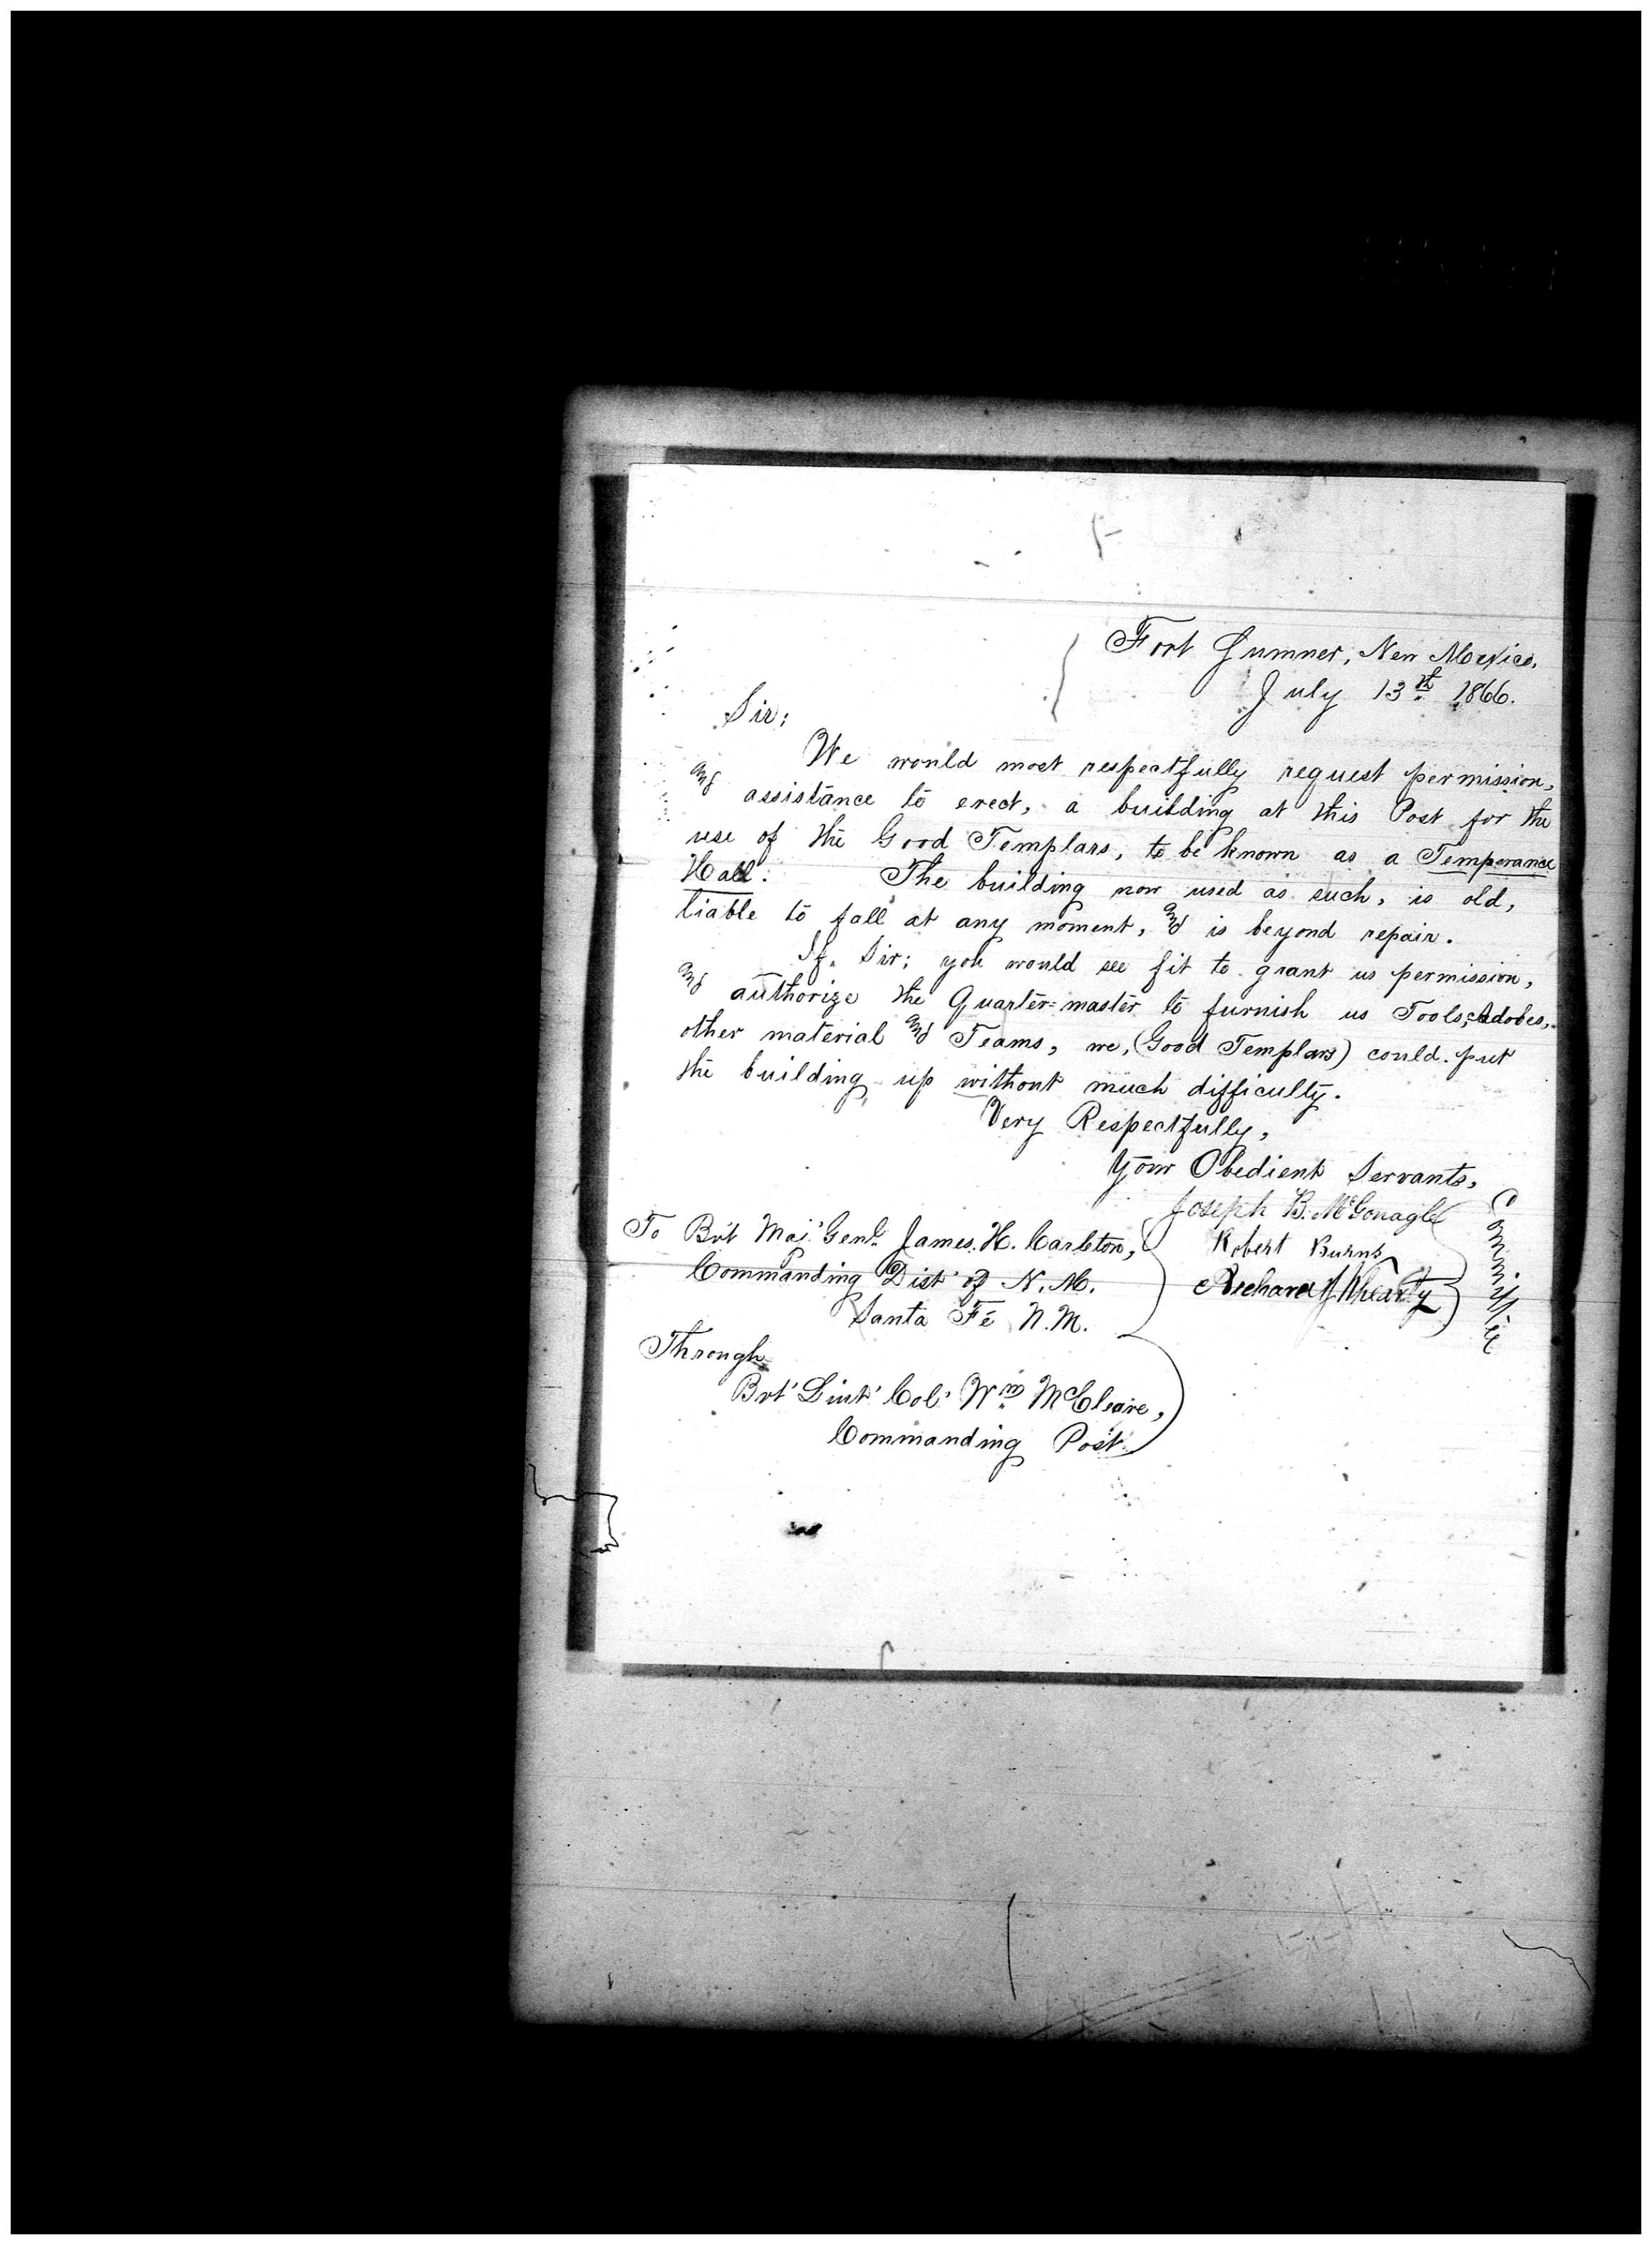 Fort Sumner, New Mexico,
July 13th 1866.
Sir;
We would most respectfully request permission,
and assistance to erect, a building at this Post for the
use of the Good Templars, to be known as a Temperance
Hall. The building now used as such, is old,
liable to fall at any moment, and is beyond repair.
If, Sir; you would see fit to grant us permission,
and authorize the Quarter-master to furnish us Tools, Adobes,
other material and Teams, we, (Good Templars) could put
the building up without much difficulty.
Very Respectfully,
Your Obedient Servants,
Joseph B. McGonagle
Robert Burns
Richard
Committee
To Bvt Maj. Genl. James. H. Carleton,
Commanding Dist of N. M.
Santa Fé N. M.
Through
Bvt Liut Col Wm McCleave,
Commanding Post.